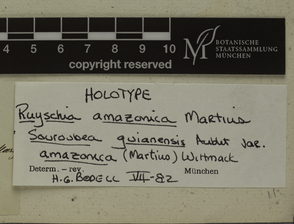 4 5 6 7 8 9 10
copyright reserved
BOTANISCHE
STAATSSAMMLUNG
MÜNCHEN
HOLOTYPE
Ruyschia amazonica Martius
Souroubea guianensis Aublet var.
amazonica (Martius) Wittmack
Determ. – rev. München
H.G. BEDELL VII-82